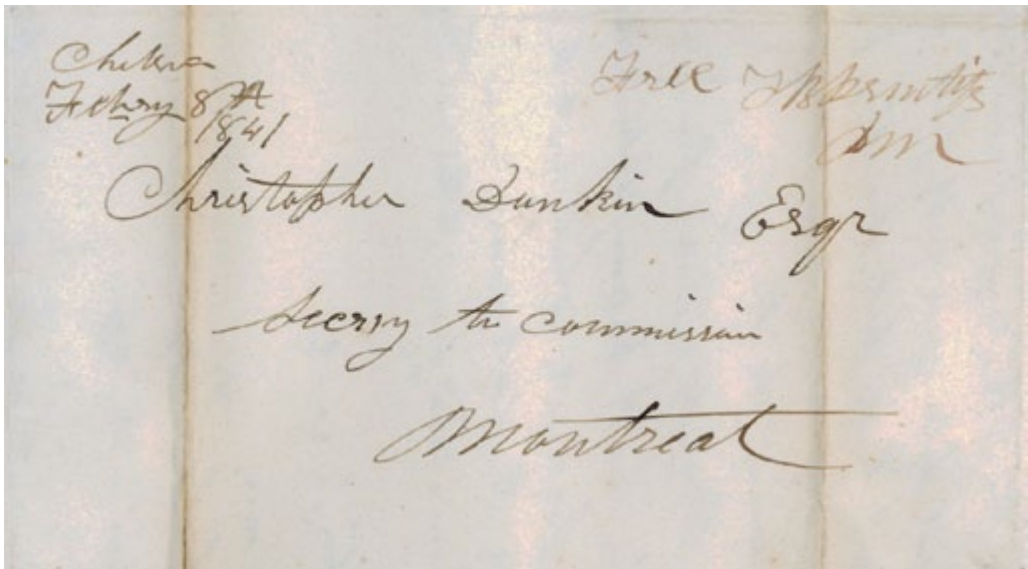 Chelsea
Febry 8th
1841
Free
Christopher Dunkin Esqr
Secrry to commission
Montreal